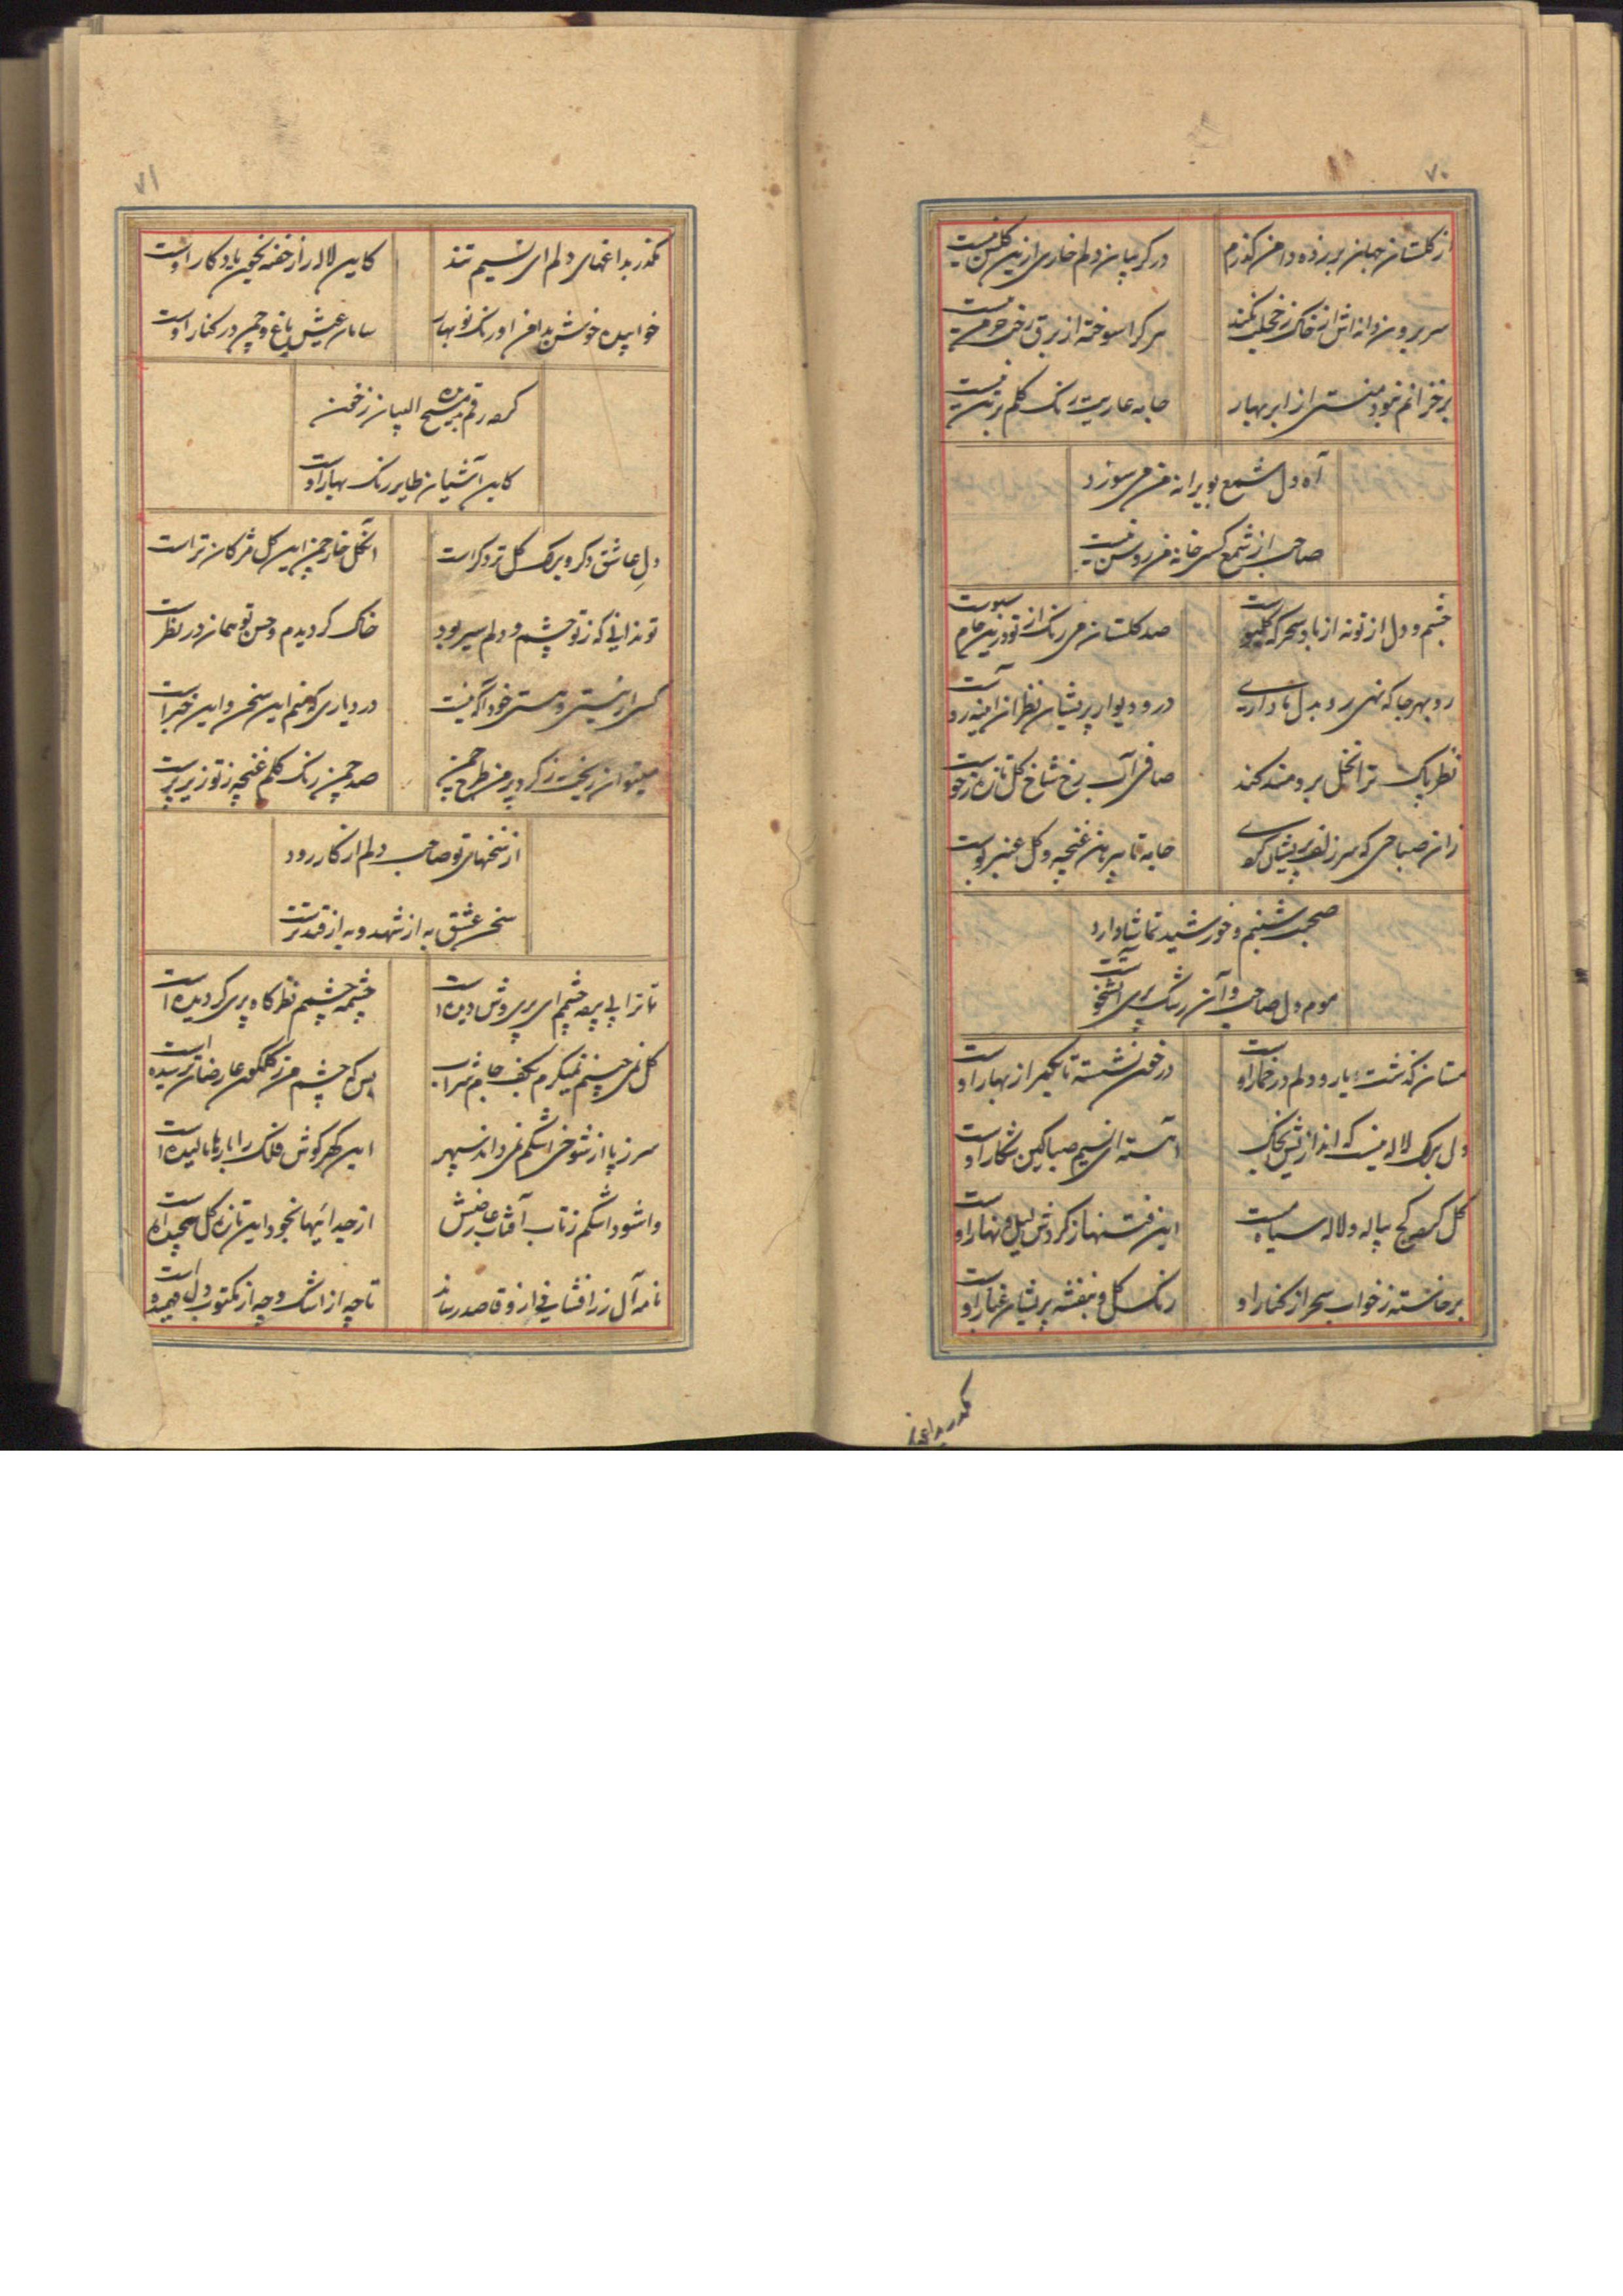 ۷۰
ز گلستان جهان بر زده دامن گذرم
در گریبان دلم خاری ازین گلشن نیست
سر برون دانه اش از خاک ز خجلت نکند
هر کرا سوخته از برق رخت خرمن نیست
بر خزانم نبود منتی از ابر بهار
جامه عاریت رنگ گلم بر تن نیست
آه دل شمع بویرانه من می سوزد
صاحب از شمع کسی خانه من روشن نیست
چشم و دل از تو نه از باد سحر گلبو است
صد گلستان می رنگ از تو درین سبوست
رو بهر جا که نهی رو بدل ما داری
در و دیوار پریشان نظران آینه روست
نظر پاک ترا نخل برومند کند
صافی آب رخ شاخ گل تازه ز جوست
زان صباحی که سر زلف پریشان کردی
جامه تا پیرهن غنچه و گل عنبربوست
صحبت شبنم و خورشید تماشا دارد
موم دل صاحب و آن رشک پری آتشخوست
مستان گذشت یار و دلم در خمار اوست
در خون نشسته تا بکمر از بهار اوست
دل برگ لاله نیست که اندازیش بخاک
آهسته ای نسیم صبا کین شکار اوست
گل کرده کج پیاله و لاله سیاه مست
این فتنها ز گردش لیل و نهار اوست
برخاسته ز خواب سحر از کنار او
رنگ گل و بنفشه پریشان غبار اوست
مگذر بداغها
۷۱
مگذر بداغهای دلم ای نسیم تند
کاین لاله زار خفته بخون یادگار اوست
خوابیده خوش بدامن او رنگ نوبهار
سامان عیش باغ و چمن در کنار اوست
کرده رقم مسیح البیان ز خون
کاین آشیان طایر رنگ بهار اوست
دل عاشق دگر و برگ گل تر دگر است
آنگل خار چمن این گل مژگان تر است
تو ندانی که ز تو چشم و دلم سیر بود
خاک گردیدم و حسن تو همان در نظر است
کس از نیستی و هستی خود آگه نیست
در دیاری که منم این سخن و این خبر است
میتوان ریخت ز گرد پر من طرح چمن
صد چمن رنگ گلم غنچه ز تو زیر پر است
از سخنهای تو صاحب دلم از کار رود
سخن عشق به از شهد و به از قند تر است
تا ترا بی پرده چشم ای پری وش دیده است
چشمه چشمم نظرگاه پری گردیده است
گل نمی چینم نمیگیرم بکف جام شراب
بس که چشم من ز گلگون عارضان ترسیده است
سر ز پا از شوخی اشکم نمی داند سپهر
این گهر گوش فلک را بارها مالیده است
وا شود اشکم ز تاب آفتاب عارضش
از جدائیها بخود این تازه گل پیچیده است
نامه آل زر افشانی ازو قاصد رساند
تا چه از اشک و چه از مکتوب دل فهمیده است